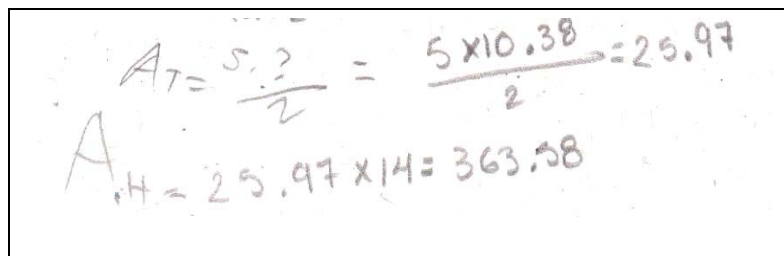 A_T = 5.?/2 = 5×10.38/2 = 25.97
A.H = 25.97×14 = 363.58